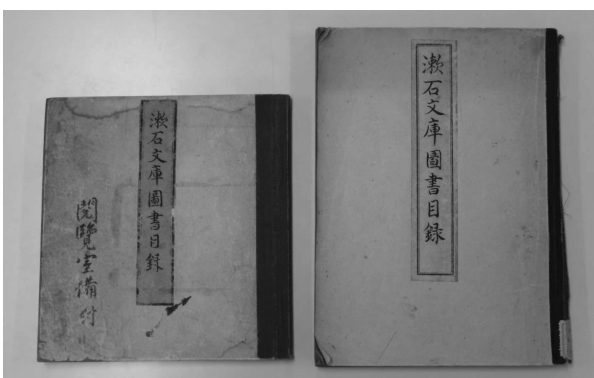 漱石文庫圖書目録
閲覽室備付
漱石文庫圖書目録